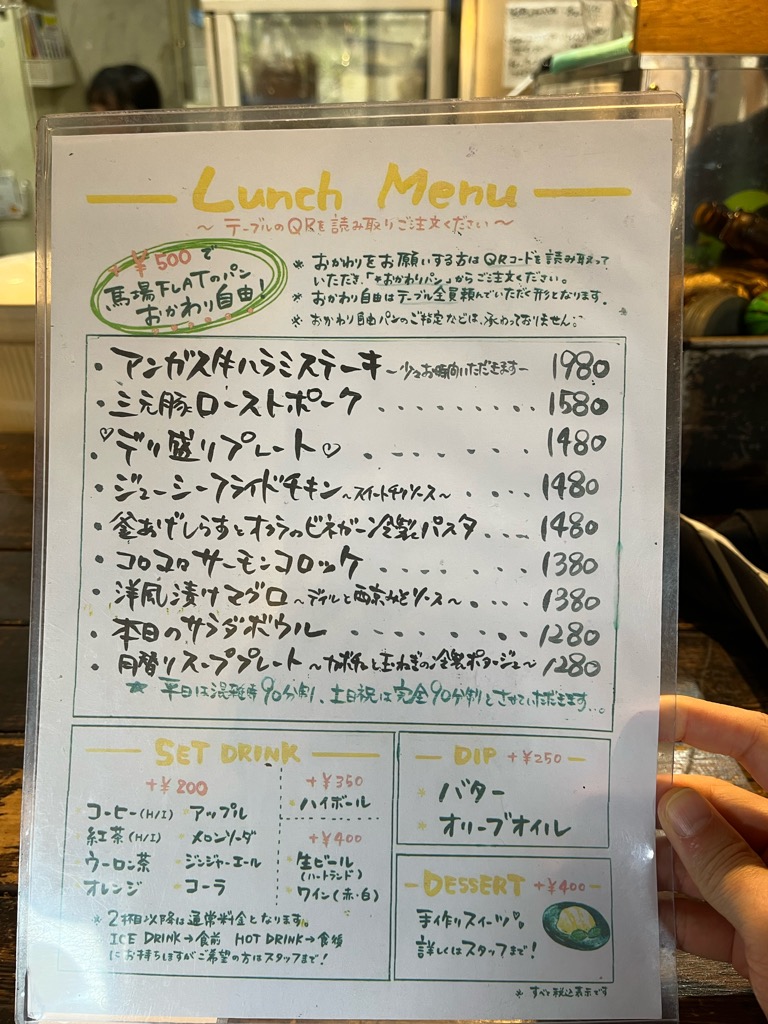 Lunch Menu
～テーブルのQRを読み取りご注文ください～
+¥500で
馬場FLATのパン
おかわり自由!
※おかわりをお願いする方はQRコードを読み取って
いただき、「+おかわりパン」からご注文ください。
※おかわり自由はテーブル全員頼んでいただく形となります。
※おかわり自由パンのご指定などは、承わっておりません。
・アンガス牛ハラミステーキ～少々お時間いただきます～ 1980
・三元豚ローストポーク ......... 1580
・デリ盛りプレート♡ ...... 1480
・ジューシーフライドチキン～スイートチリソース～ .... 1480
・釜あげしらすとオクラのビネガー冷製パスタ ... 1480
・コロコロサーモンコロッケ ....... 1380
・洋風漬けマグロ～ディルと西京みそソース～ .... 1380
・本日のサラダボウル ....... 1280
・月替りスーププレート～カボチャと玉ねぎの冷製ポタージュ～ 1280
★平日は混雑時90分制、土日祝は完全90分制とさせていただきます...
SET DRINK
+¥200
コーヒー(H/I) アップル
紅茶(H/I) メロンソーダ
ウーロン茶 ジンジャーエール
オレンジ コーラ
+¥350
ハイボール
+¥400
生ビール
(ハートランド)
ワイン(赤・白)
※2杯目以降は通常料金となります。
ICE DRINK→食前 HOT DRINK→食後
にお持ちしますがご希望の方はスタッフまで!
DIP +¥250
バター
オリーブオイル
DESSERT +¥400
手作りスイーツ♡。
詳しくはスタッフまで!
※すべて税込表示です